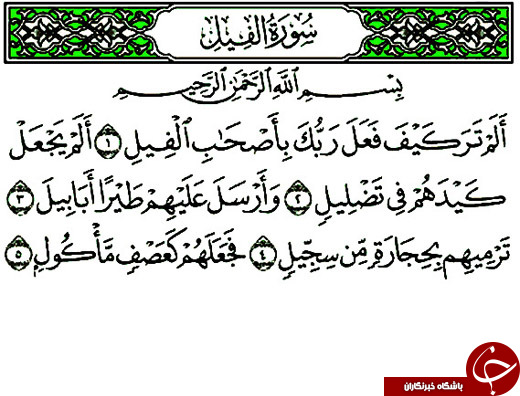 سُورَةُ الفِيلِ
بِسْمِ اللَّهِ الرَّحْمَٰنِ الرَّحِيمِ
أَلَمْ تَرَ كَيْفَ فَعَلَ رَبُّكَ بِأَصْحَابِ الْفِيلِ ١ أَلَمْ يَجْعَلْ
كَيْدَهُمْ فِي تَضْلِيلٍ ٢ وَأَرْسَلَ عَلَيْهِمْ طَيْرًا أَبَابِيلَ ٣
تَرْمِيهِم بِحِجَارَةٍ مِّن سِجِّيلٍ ٤ فَجَعَلَهُمْ كَعَصْفٍ مَّأْكُولٍ ٥
باشگاه خبرنگاران